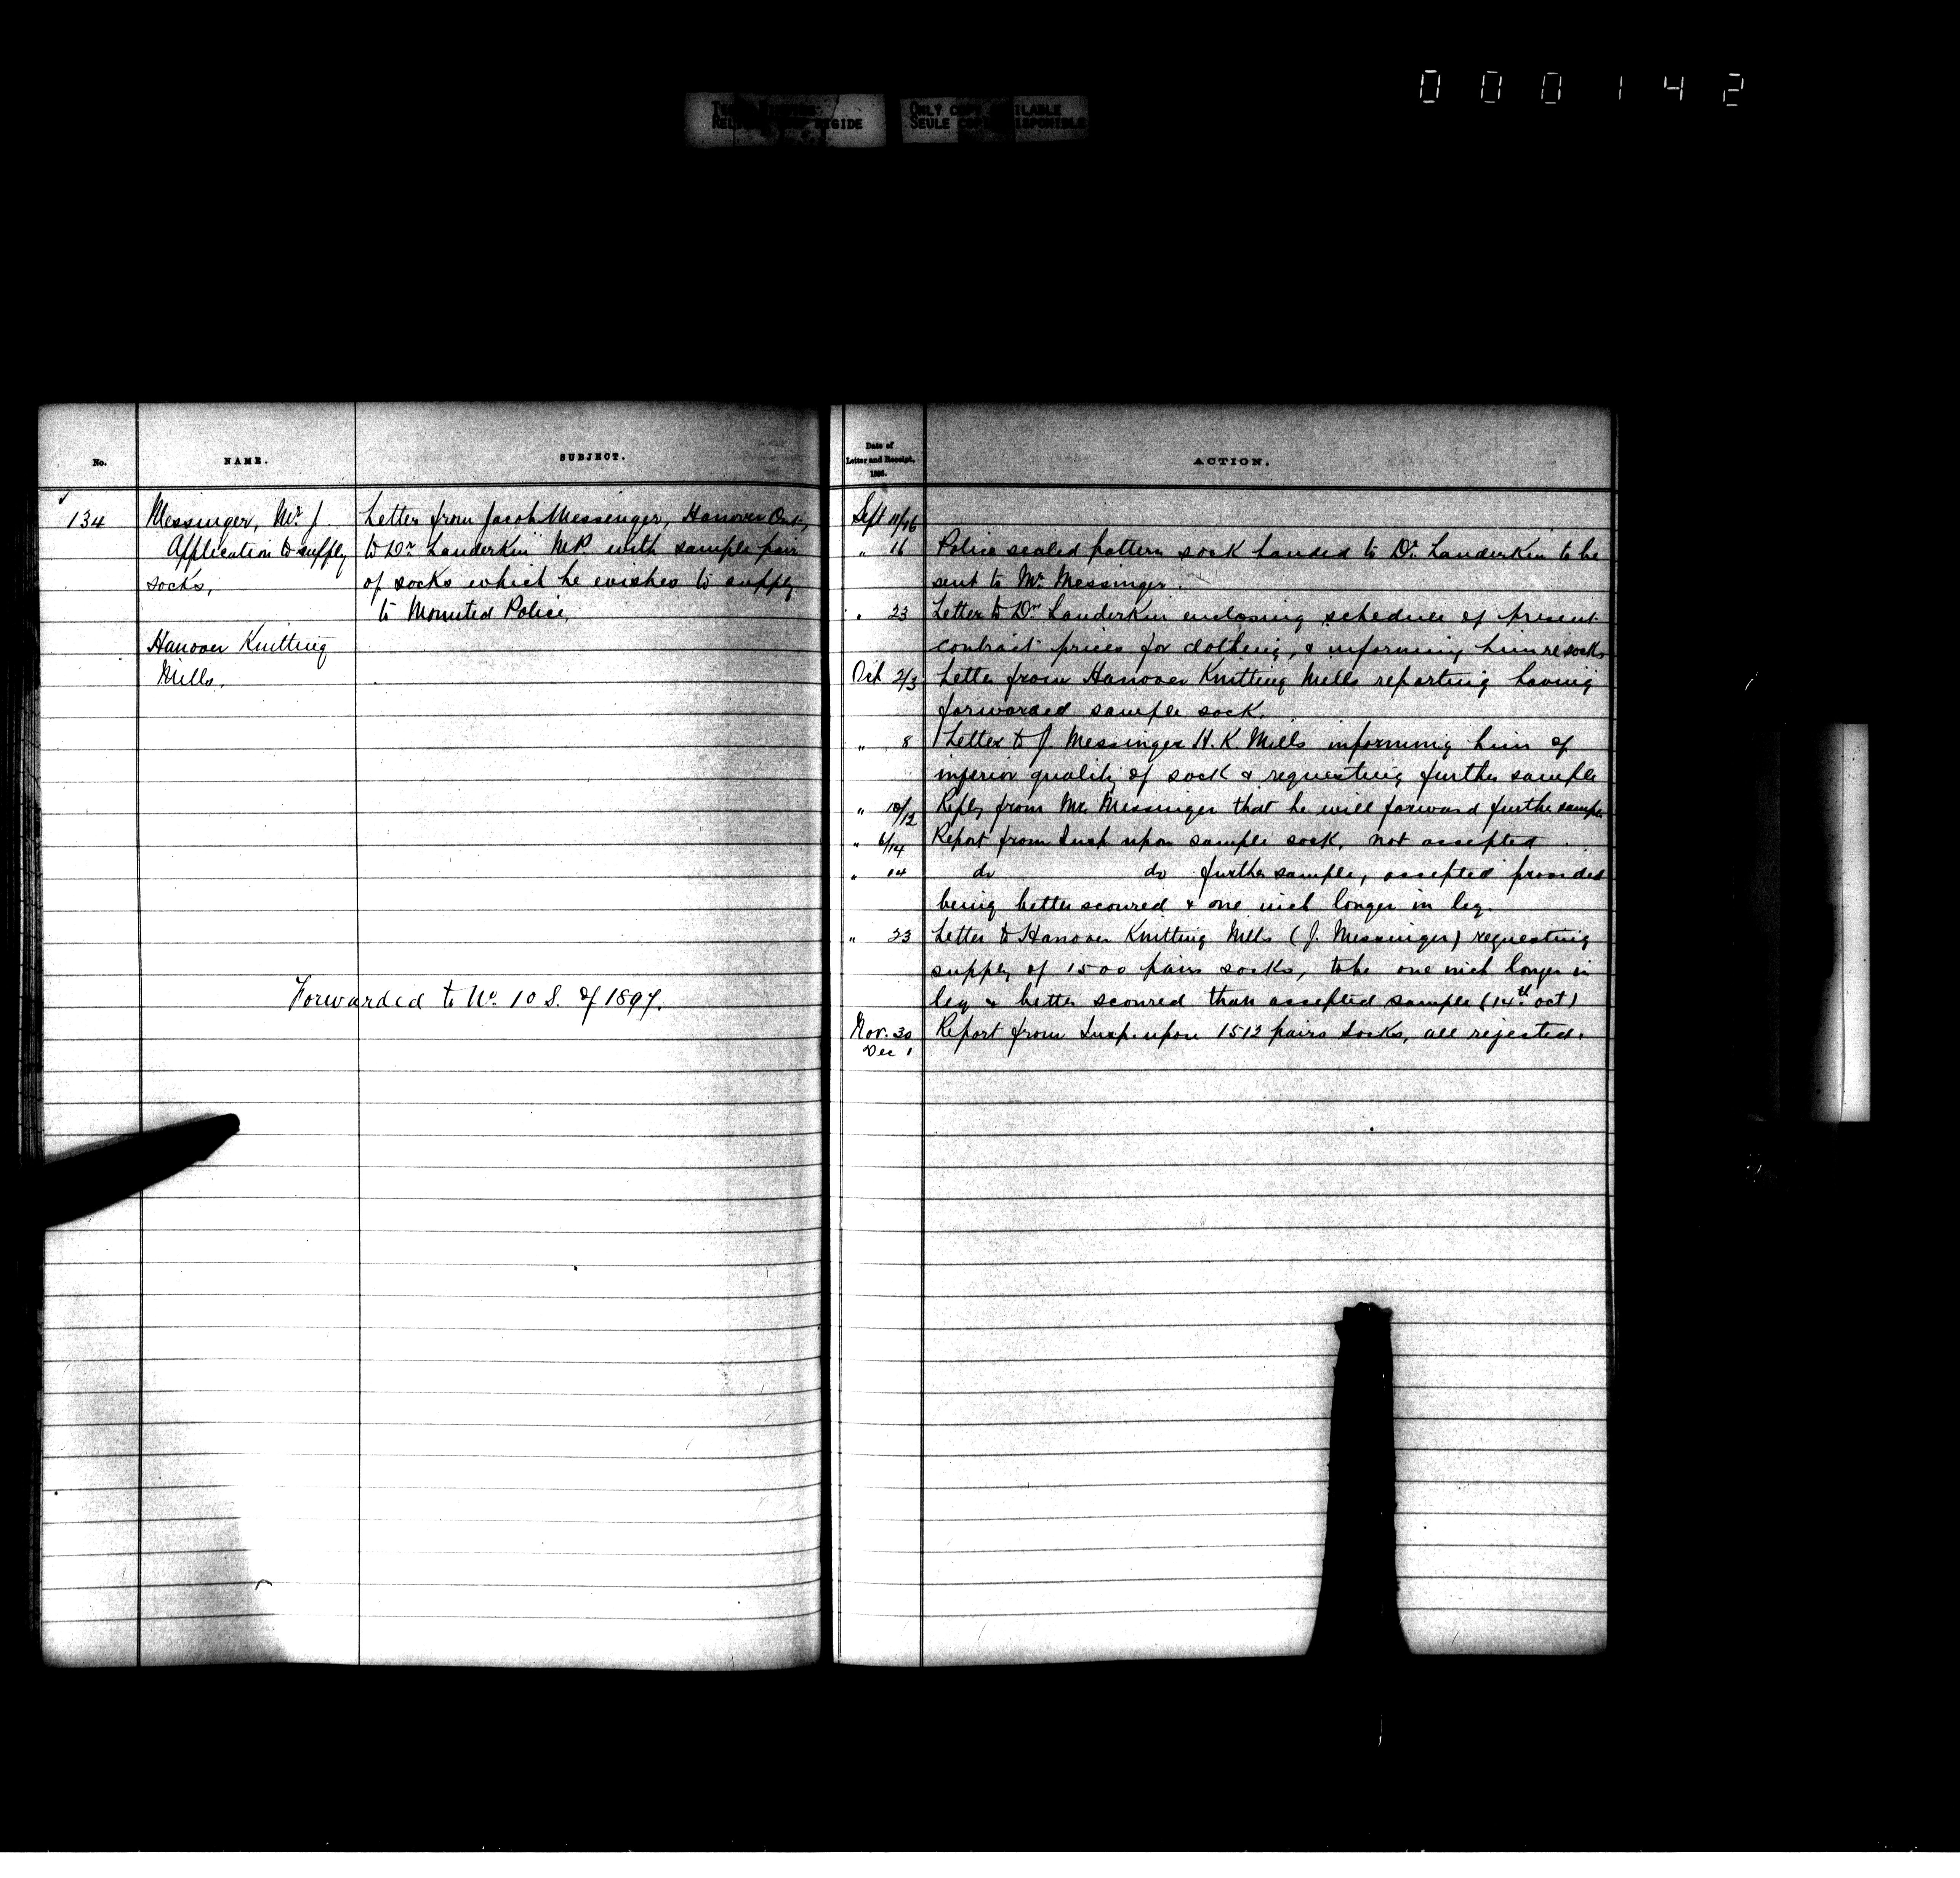 0 0 0 1 4 2
ONLY COPY AVAILABLE
SEULE COPIE DISPONIBLE
No.
NAME.
SUBJECT.
134
Messinger, Mr. J.
Application to supply
socks,
Hanover Knitting
Mills,
Letter from Jacob Messenger, Hanover Ont,
to Dr. Landerkin M.P. with sample pair
of socks which he wishes to supply
to Mounted Police,
Forwarded to No. 10 S. of 1897.
Date of
Letter and Receipt,
1896.
ACTION.
Sept 11/16
" 16 Police sealed pattern sock handed to Dr. Landerkin to be
sent to Mr. Messinger.
" 23 Letter to Dr. Landerkin enclosing schedule of present
contract prices for clothing, & informing him re socks
Oct 2/3 Letter from Hanover Knitting Mills reporting having
forwarded sample sock.
" 8 Letter to J. Messinger H. K. Mills informing him of
inferior quality of sock & requesting further sample
" 10/12 Reply from Mr. Messinger that he will forward further sample
" 6/14 Report from Insp. upon sample sock, not accepted
" 14 do do further sample, accepted provided
being better scoured & one inch longer in leg.
" 23 Letter to Hanover Knitting Mills (J. Messinger) requesting
supply of 1500 pairs socks, to be one inch longer in
leg & better scoured than accepted sample (14th Oct)
Nov. 30 Report from Insp. upon 1512 pairs socks, all rejected.
Dec 1